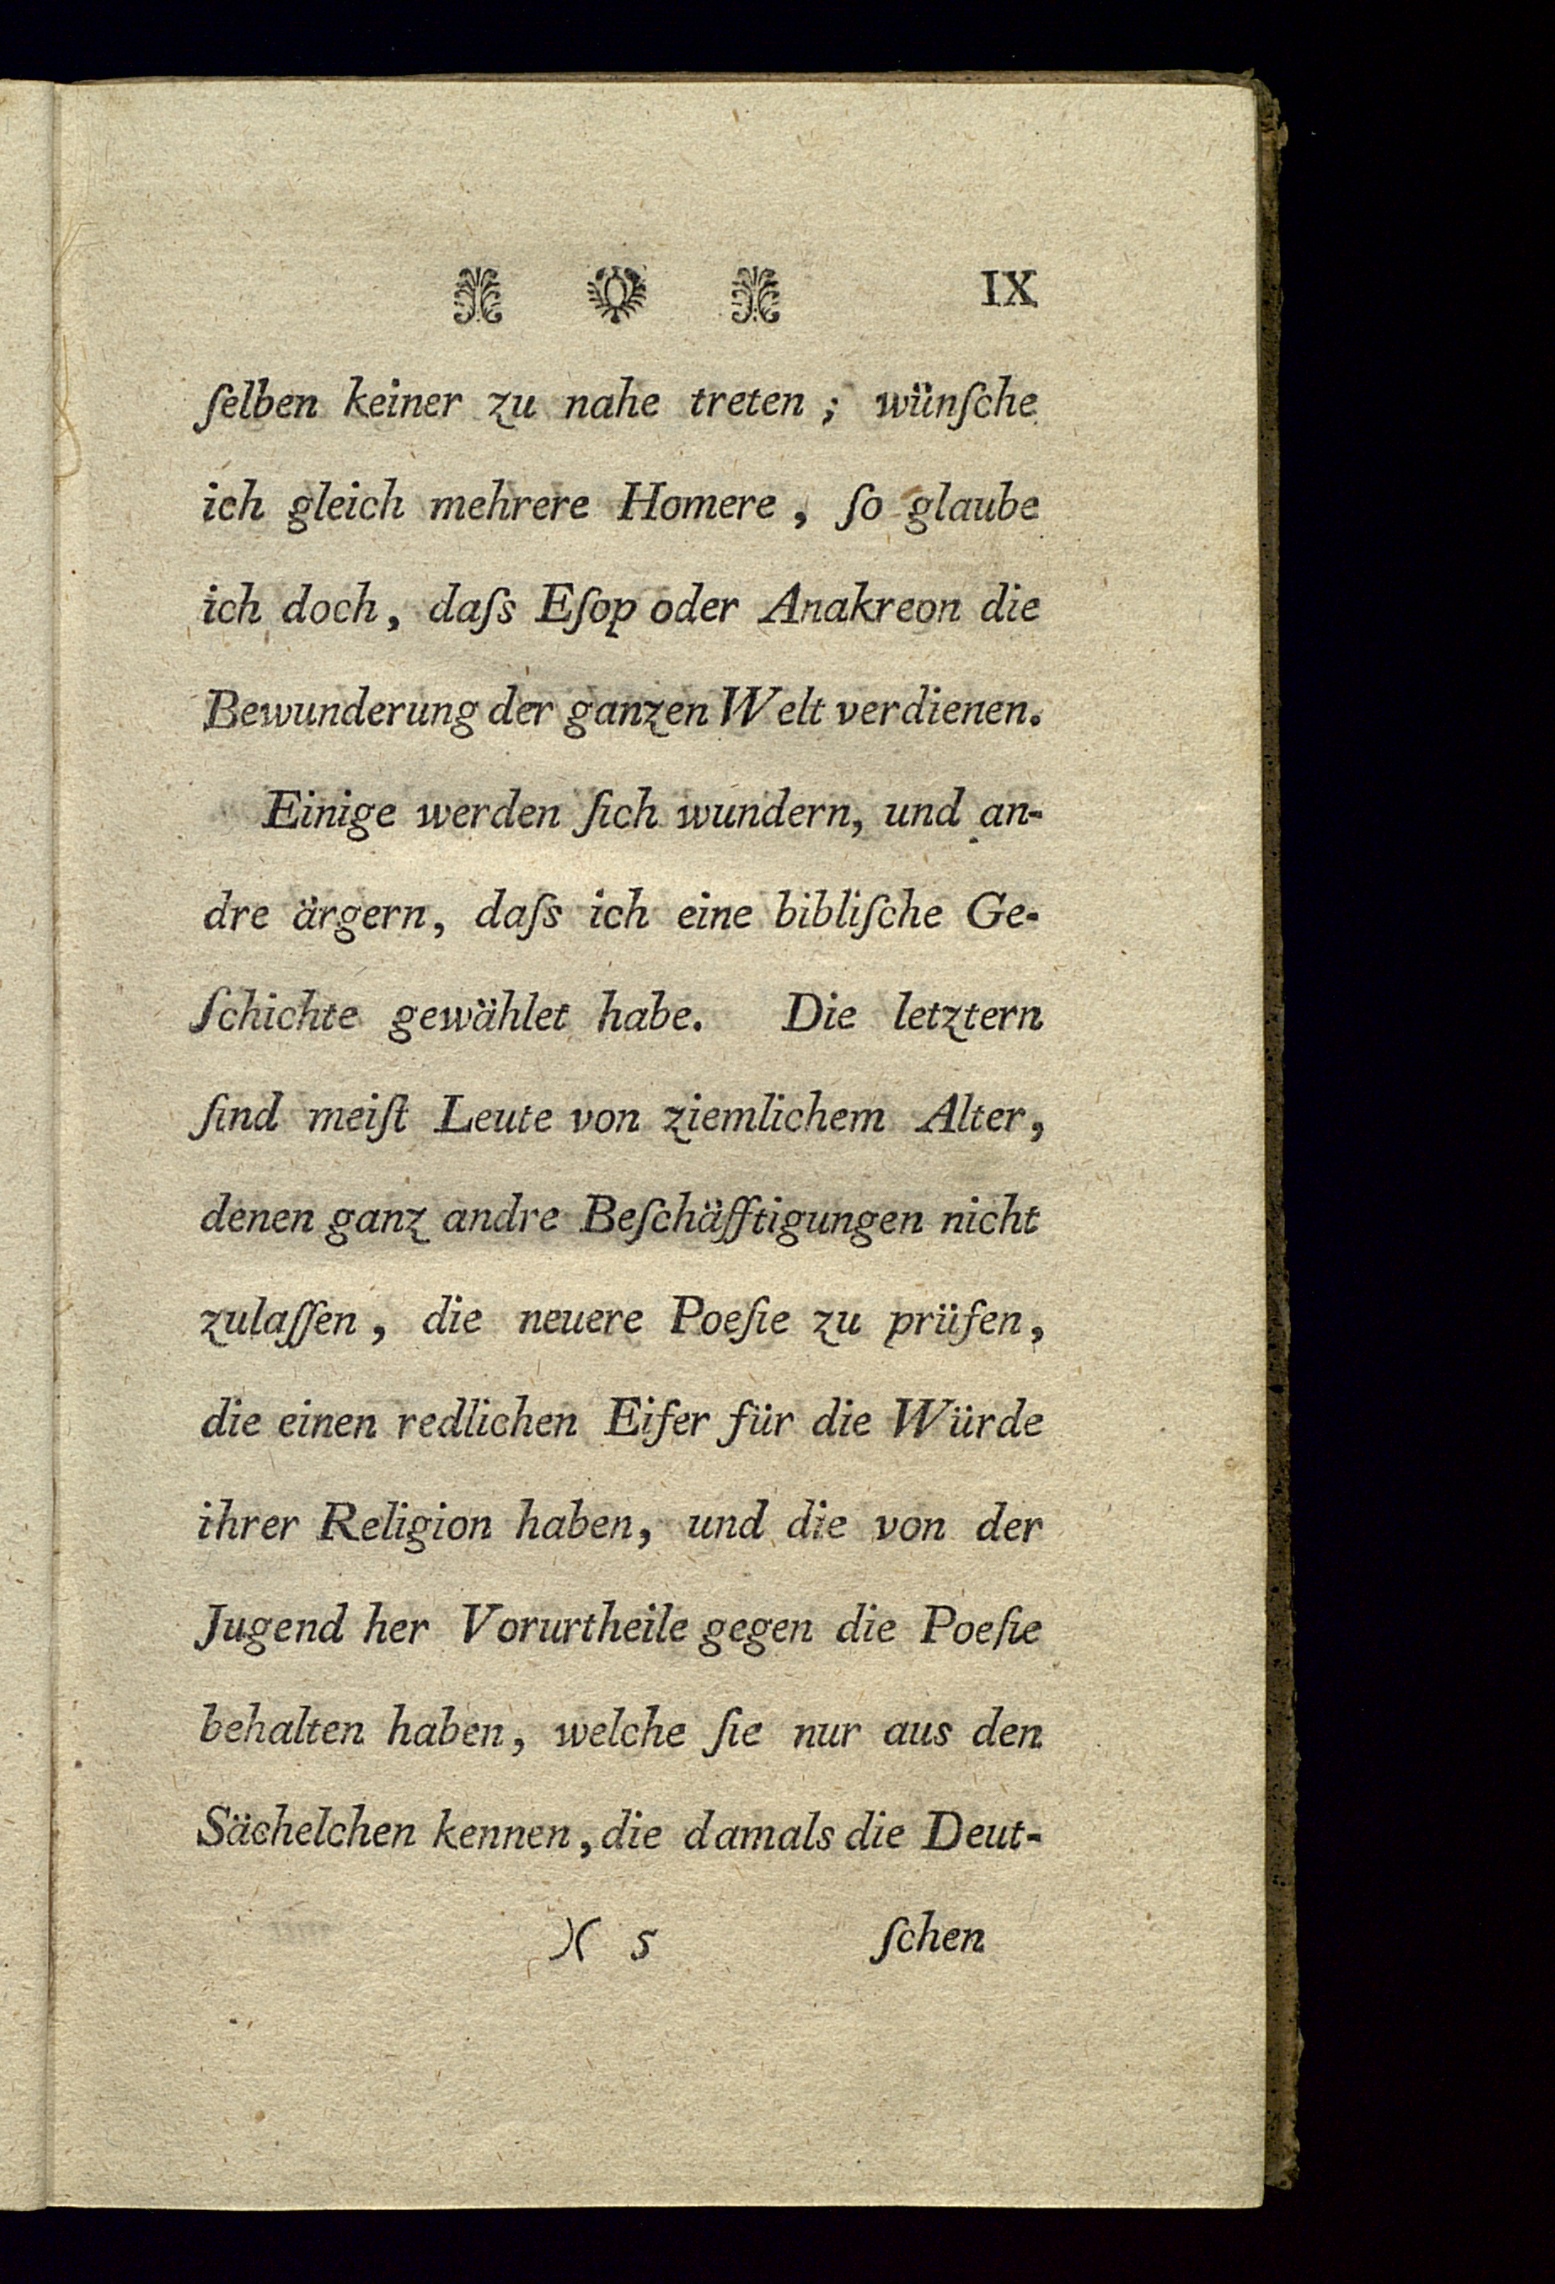 IX
ſelben keiner zu nahe treten; wünſche
ich gleich mehrere Homere, ſo glaube
ich doch, daſs Eſop oder Anakreon die
Bewunderung der ganzen Welt verdienen.
Einige werden ſich wundern, und an-
dre ärgern, daſs ich eine bibliſche Ge-
ſchichte gewählet habe. Die letztern
ſind meiſt Leute von ziemlichem Alter,
denen ganz andre Beſchäfftigungen nicht
zulaſſen, die neuere Poeſie zu prüfen,
die einen redlichen Eifer für die Würde
ihrer Religion haben, und die von der
Jugend her Vorurtheile gegen die Poeſie
behalten haben, welche ſie nur aus den
Sächelchen kennen, die damals die Deut-
)( 5 ſchen